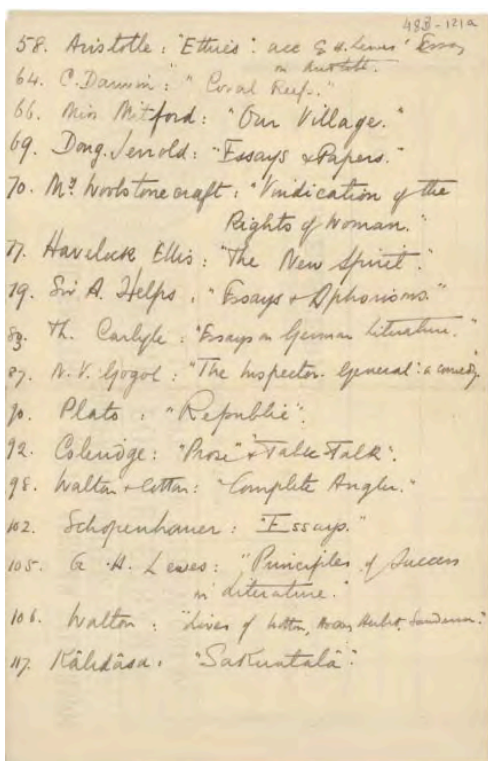 48B-121a
58. Aristotle: "Ethics": acc G. H. Lewes' Essay
on Aristotle.
64. C. Darwin: "Coral Reefs."
66. Miss Mitford: "Our Village."
69. Doug. Jerrold: "Essays & Papers."
70. My. Woolstonecraft: "Vindication of the
Rights of Woman."
77. Havelock Ellis: "The New Spirit."
79. Sir A. Helps: "Essays & Aphorisms."
83. Th. Carlyle: "Essays on German Literature."
87. N. V. Gogol: "The Inspector-General: a comedy."
90. Plato: "Republic".
92. Coleridge: "Prose" & Table Talk".
98. Walton & Cotton: "Complete Angler."
102. Schopenhauer: "Essays."
105. G. H. Lewes: "Principles of Success
in Literature."
106. Walton: "Lives of Wotton, Herbert, Sanderson."
117. Kâlidâsa: "Sakuntalâ".